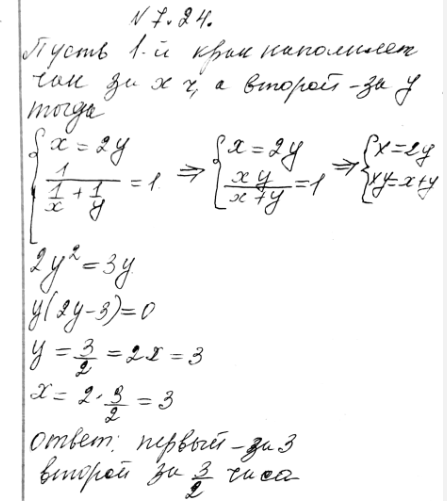 № 7.24.
Пусть 1-й кран наполняет
чан за x ч, а второй - за y
тогда
{ x = 2y
1 / (1/x + 1/y) = 1 ⇒ { x = 2y
xy / (x+y) = 1 ⇒ { x = 2y
xy = x+y
2y² = 3y
y(2y-3)=0
y = 3/2 = 2x = 3
x = 2 · 3/2 = 3
ответ: первый - за 3
второй за 3/2 часа